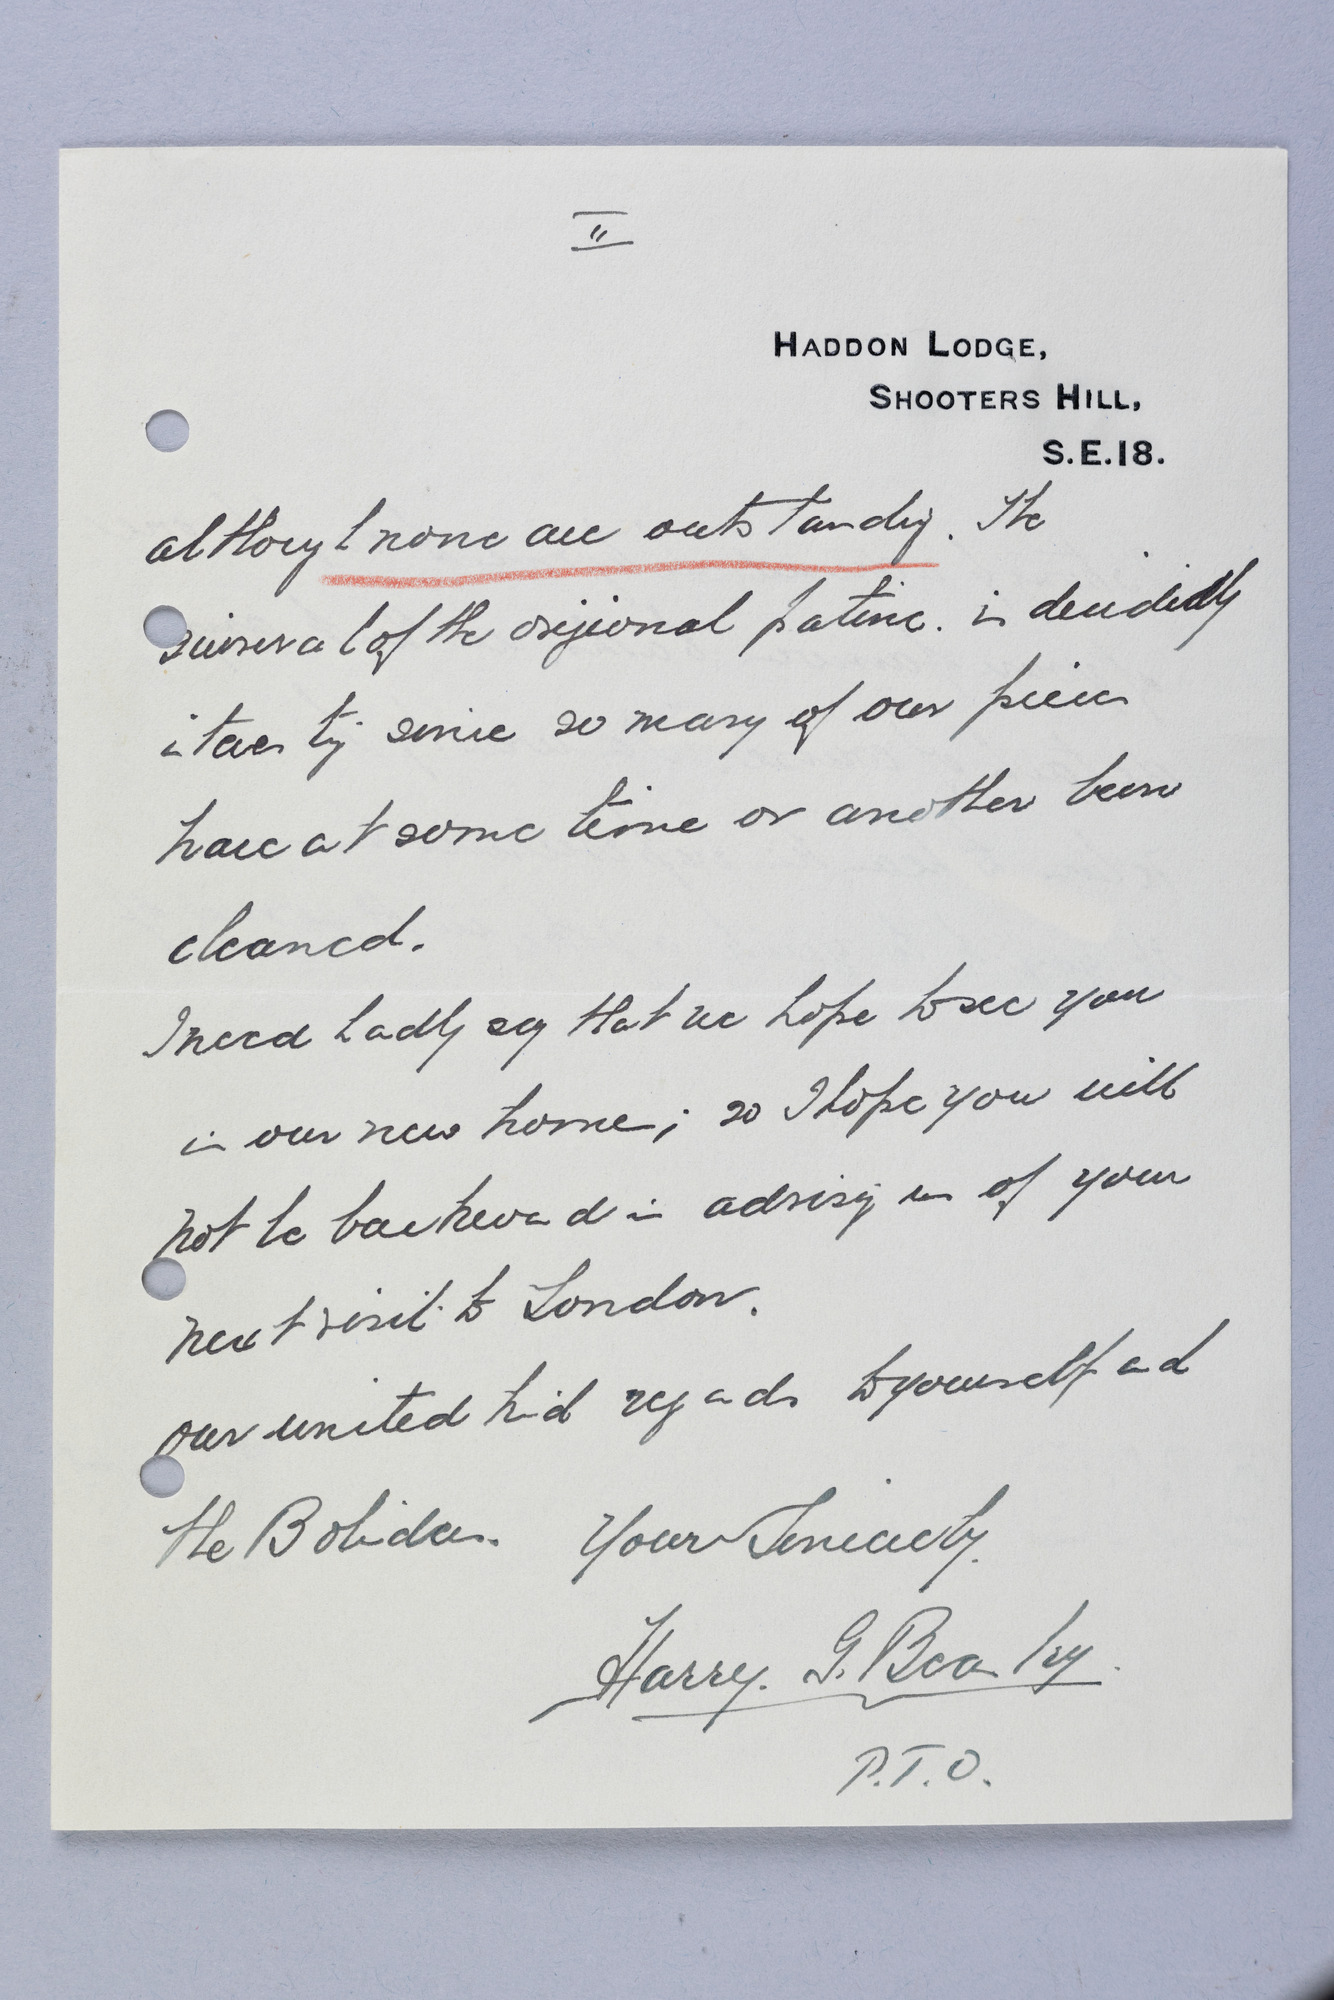 II
HADDON LODGE,
SHOOTERS HILL,
S.E.18.
although none are outstanding. The
survival of the origional patine. is decidedly
interesting since so many of our pieces
have at some time or another been
cleaned.
I need hadly say that we hope to see you
in our new home; so I hope you will
not be backward in advising us of your
next visit to London.
our united kind regards to yourself and
the Bolidens. Yours Sincerely.
Harry. G. Beasley.
P.T.O.